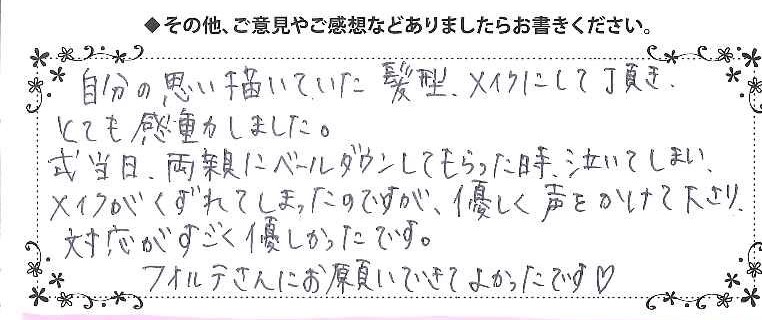 ◆その他、ご意見やご感想などありましたらお書きください。
自分の思い描いていた髪型、メイクにして頂き、
とても感動しました。
式当日、両親にベールダウンしてもらった時、泣いてしまい、
メイクがくずれてしまったのですが、優しく声をかけて下さり、
対応がすごく優しかったです。
フォルテさんにお願いできてよかったです♡